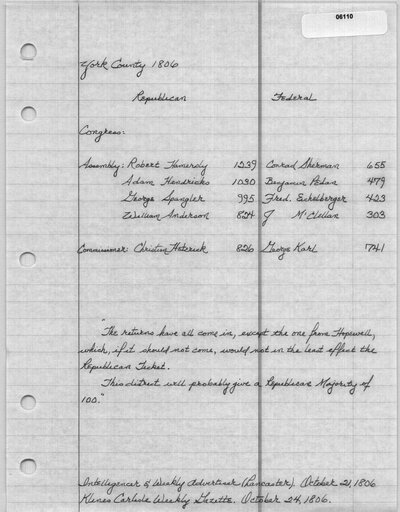 06110
York County 1806
Republican Federal
Congress:
Assembly: Robert Hamersly 1239 Conrad Sherman 655
Adam Hendricks 1030 Benjamin Pedan 479
George Spangler 995 Fred. Eichelberger 423
William Anderson 824 J McClellan 303
Commissioner: Christian Hetrick 826 George Karl 741
"The returns have all come in, except the one from Hopewell,
which, if it should not come, would not in the least effect the
Republican Ticket.
This district will probably give a Republican Majority of
100."
Intelligencer & Weekly Advertiser (Lancaster). October 21, 1806
Klines Carlisle Weekly Gazette. October 24, 1806.